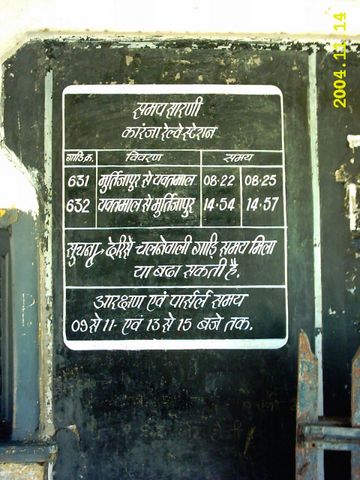 2004.11.14
समय सारणी
कारंजा रेल्वे स्टेशन
गाडि क्र. विवरण समय
631 मुर्तिजापुर से यवतमाल 08-22 08-25
632 यवतमाल से मुर्तिजापुर 14-54 14-57
सुचना,- देरीसे चलनेवाली गाडि समय मिला
या बढा सकती है.
आरक्षण एवं पार्सल समय
09 से 11 एवं 13 से 15 बजे तक.